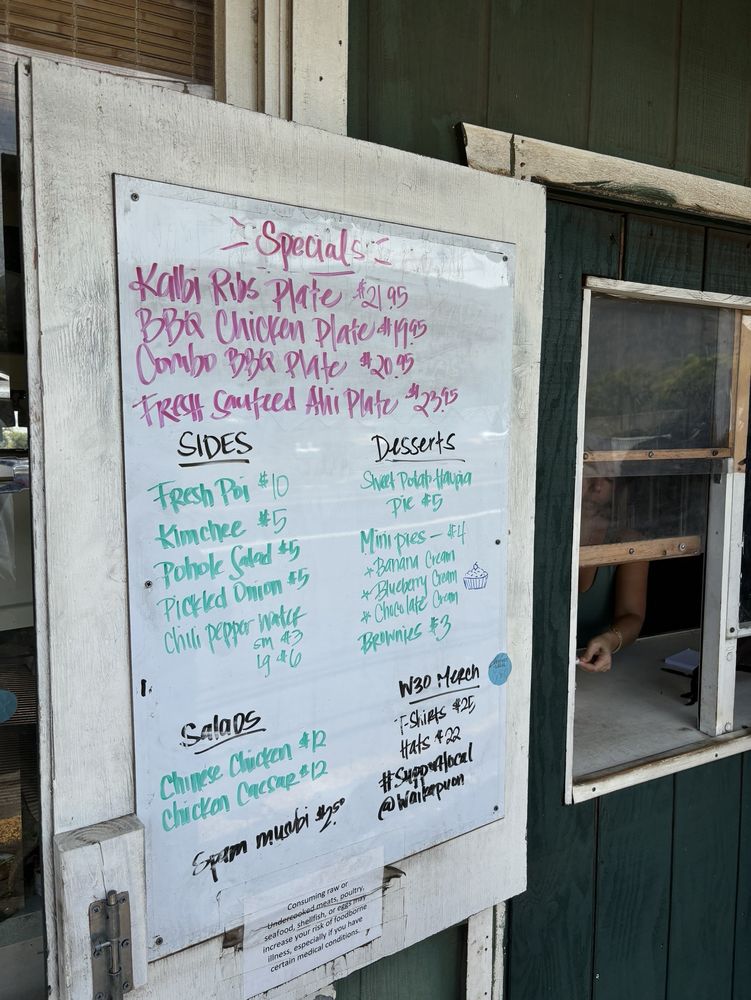 Specials
Kalbi Ribs Plate $21.95
BBQ Chicken Plate $19.95
Combo BBQ Plate $20.95
FRESH Sauteed Ahi Plate $23.95
SIDES
Fresh Poi $10
Kimchee $5
Pohole Salad $5
Pickled Onion $5
Chili Pepper Water
sm $3
lg $6
Desserts
Sweet Potato Haupia
Pie $5
Mini pies - $4
* Banana Cream
* Blueberry Cream
* Chocolate Cream
Brownies $3
Salads
Chinese Chicken $12
Chicken Caesar $12
Spam musubi
W30 Merch
T-Shirts $25
Hats $22
#Supportlocal
Consuming raw or
Undercooked meats, poultry,
seafood, shellfish, or eggs may
increase your risk of foodborne
illness, especially if you have
certain medical conditions.